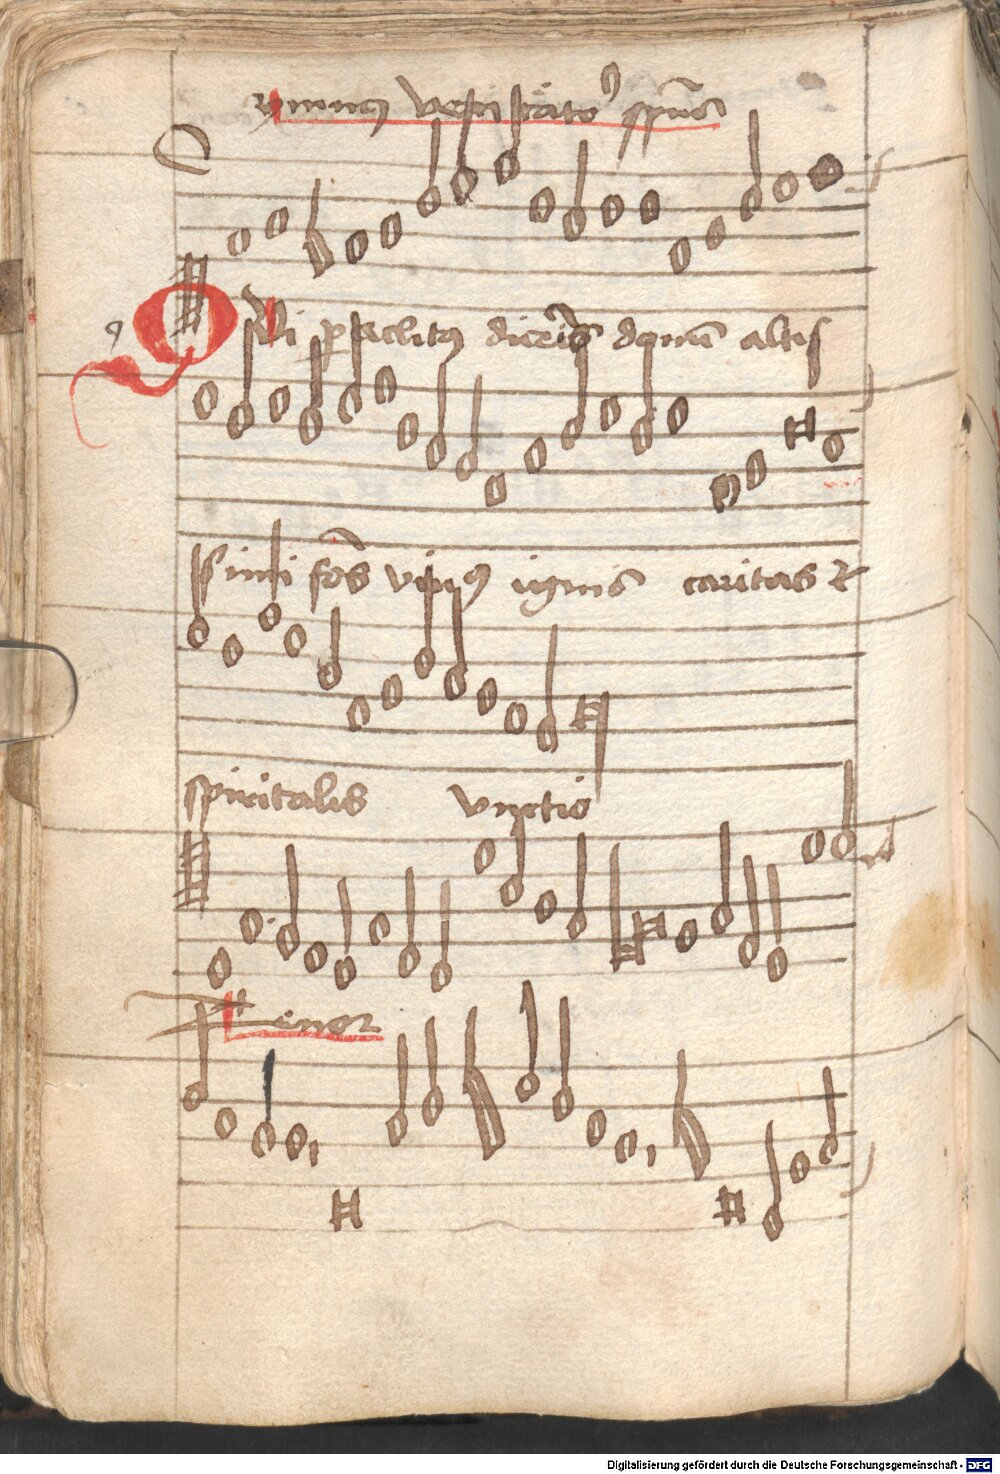 Qvi paraclitus diceris donum altis
simi fons vivus ignis caritas &
spiritalis vnctio
Tenor
Digitalisierung gefördert durch die Deutsche Forschungsgemeinschaft - DFG